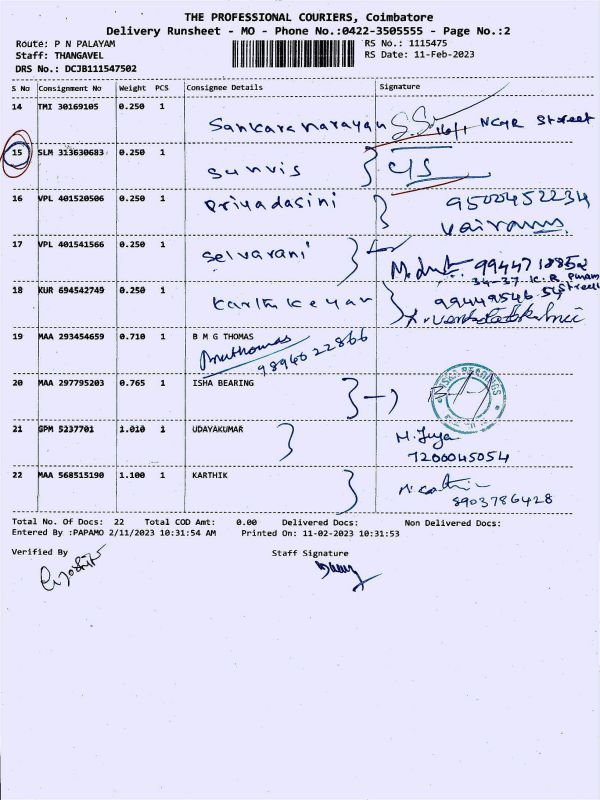 THE PROFESSIONAL COURIERS, Coimbatore
Delivery Runsheet - MO - Phone No.:0422-3505555 - Page No.:2
Route: P N PALAYAM RS No.: 1115475
Staff: THANGAVEL RS Date: 11-Feb-2023
DRS No.: DCJB111547502
S No Consignment No Weight PCS Consignee Details Signature
14 TMI 30169105 0.250 1 Sankaranarayan 16/1 NCGR Street
15 SLM 313630683 0.250 1 Sunvis
16 VPL 401520506 0.250 1 Priyadasini 9500452234
Vairam
17 VPL 401541566 0.250 1 Selvarani 9944718852
34-37 K.R Puram Street
18 KUR 694542749 0.250 1 Karthikeyan 9944954654
19 MAA 293454659 0.710 1 B M G THOMAS
9894622866
20 MAA 297795203 0.765 1 ISHA BEARING
21 GPM 5237701 1.010 1 UDAYAKUMAR
7200045054
22 MAA 568515190 1.100 1 KARTHIK
8903786428
Total No. Of Docs: 22 Total COD Amt: 0.00 Delivered Docs: Non Delivered Docs:
Entered By :PAPAMO 2/11/2023 10:31:54 AM Printed On: 11-02-2023 10:31:53
Verified By Staff Signature